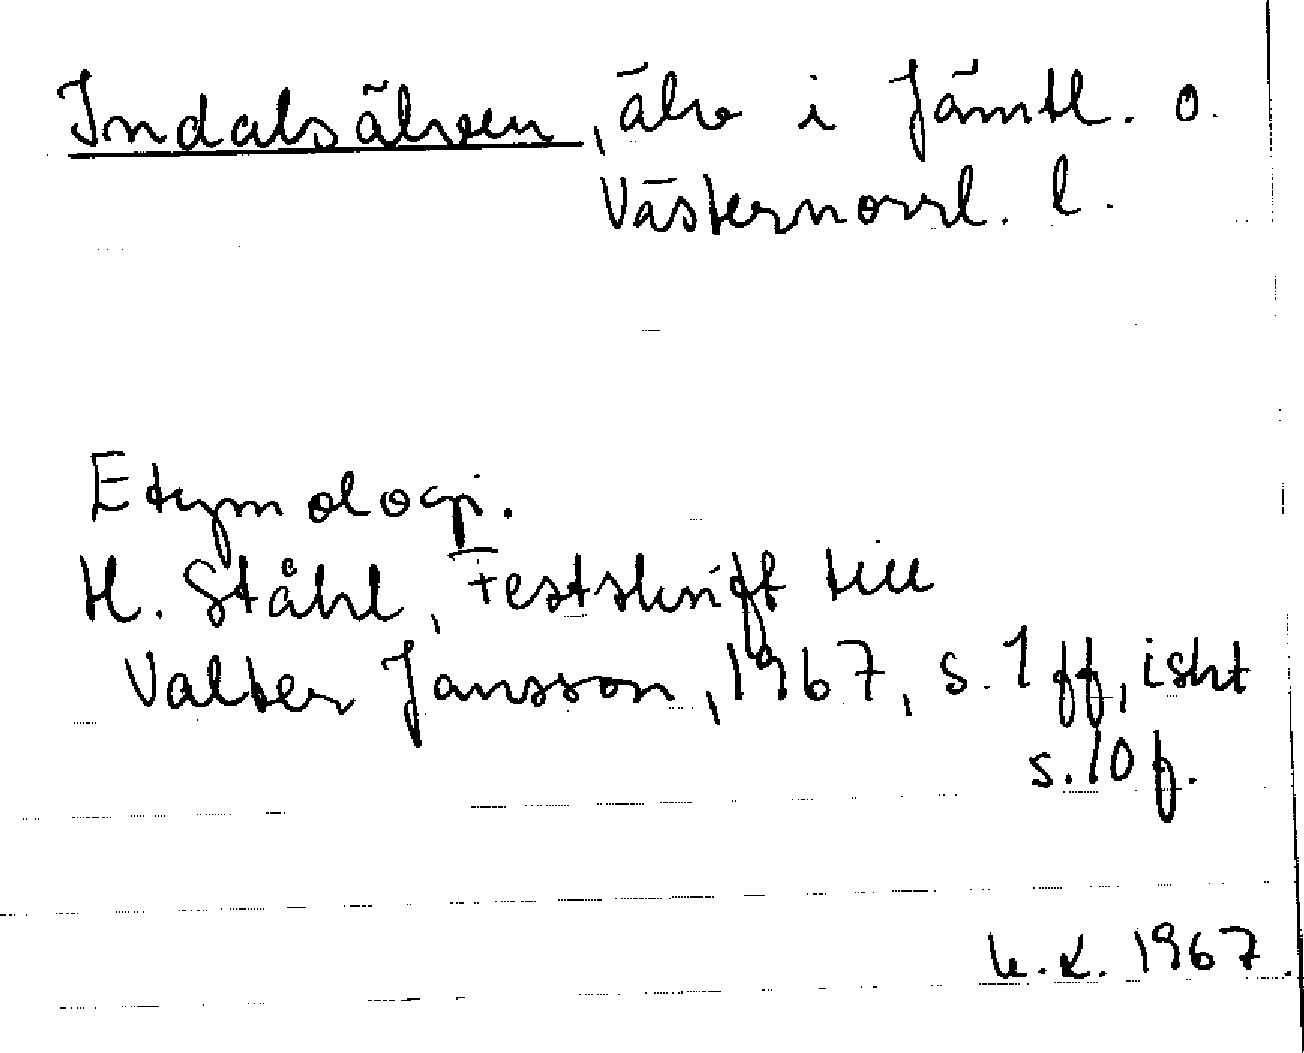 Indalsälven, älv i Jämtl. o.
Västernorrl. l.
Etymologi.
H. Ståhl, Festskrift till
Valter Jansson, 1967, s. 1 ff, isht
s. 10 f.
K. 1967